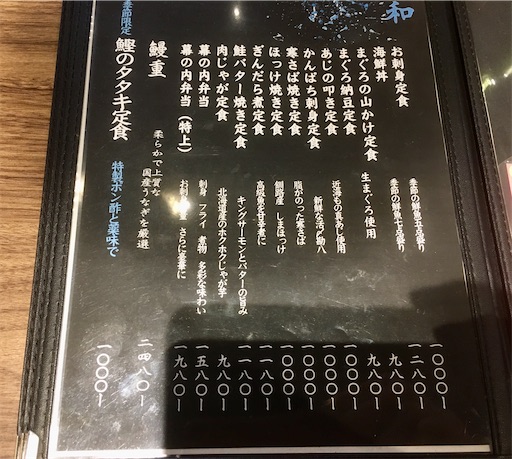 和
お刺身定食 季節の鮮魚七点盛り 一〇〇〇ー
海鮮丼 季節の鮮魚七点盛り 一二八〇ー
まぐろの山かけ定食 生まぐろ使用 九八〇ー
まぐろ納豆定食 九八〇ー
あじの叩き定食 近海もの真あじ使用 一〇〇〇ー
かんぱち刺身定食 新鮮な活〆勘八 一〇〇〇ー
寒さば焼き定食 脂がのった寒さば 一〇〇〇ー
ほっけ焼き定食 釧路産 しまほっけ 一〇〇〇ー
ぎんだら煮定食 高級魚を甘辛煮に 一一八〇ー
鮭バター焼き定食 キングサーモンとバターの旨み 一一八〇ー
肉じゃが定食 北海道産のホクホクじゃが芋 九八〇ー
幕の内弁当 刺身 フライ 煮物 多彩な味わい 一五八〇ー
幕の内弁当(特上) お刺身 さらに豪華に 一九八〇ー
鰻重 柔らかで上質な
国産うなぎを厳選 二四八〇ー
季節限定
鰹のタタキ定食 特製ポン酢と薬味で 一〇〇〇ー